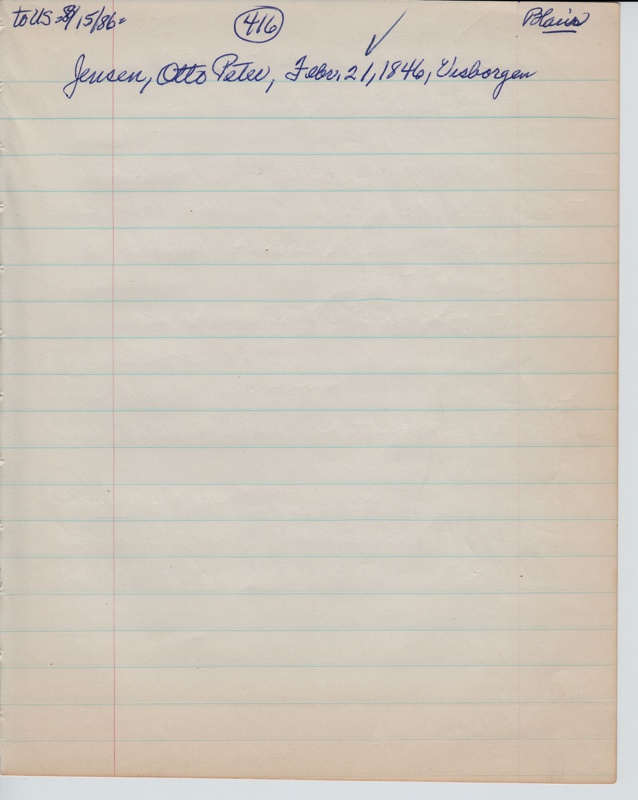 to US 8/15/86 416 Blair
Jensen, Otto Peter, Febr. 21, 1846, Visborgen